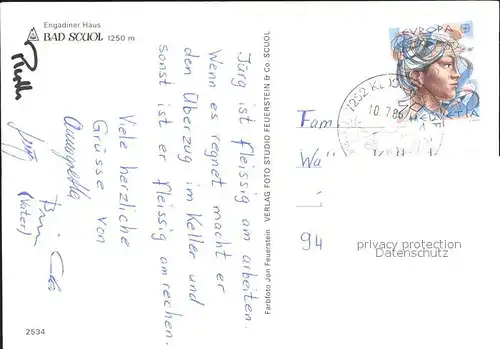 Engadiner Haus
BAD SCUOL 1250 m
Ruth
Jürg ist fleissig am arbeiten.
Wenn es regnet macht er
den Überzug im Keller und
sonst ist er fleissig am rechen.
Viele herzliche
Grüsse von
Annagretha
(Vater)
2534
Farbfoto Jon Feuerstein VERLAG FOTO STUDIO FEUERSTEIN & Co. SCUOL
EUROPA
HELVETIA
10.7.86
Fam
94
privacy protection
Datenschutz